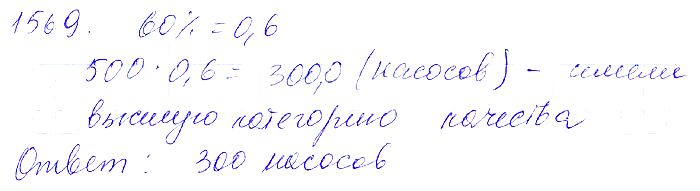 1569. 60% = 0,6
500 · 0,6 = 300,0 (насосов) – имели
высшую категорию качества
Ответ: 300 насосов